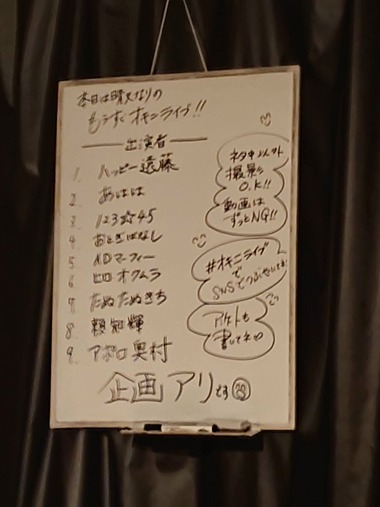 本日は晴天なりの
もうすぐオキニライブ!!
出演者
1. ハッピー遠藤
2. あはは
3. 123☆45
4. おとぎばなし
5. ADマーフィー
6. ヒロオクムラ
7. たぬたぬきち
8. 頼知輝
9. アポロ奥村
企画アリです
ネタ中以外
撮影
O.K!!
動画は
ずっとNG!!
#オキニライブ
で
SNSでつぶやいてね
アンケートも
書いてネ